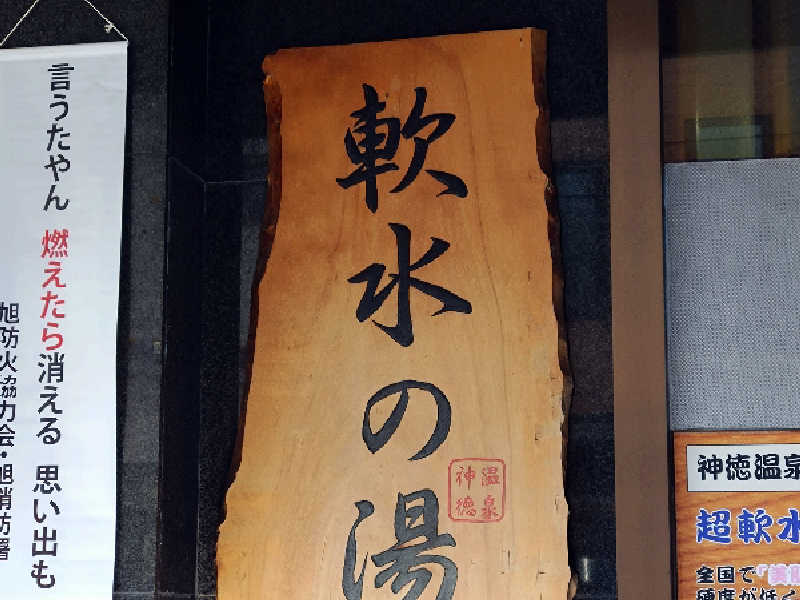 言うたやん 燃えたら消える 思い出も
旭防火協力会・旭消防署
軟水の湯
温泉
神徳
神徳温泉
超軟水
全国で「美肌
硬度が低く